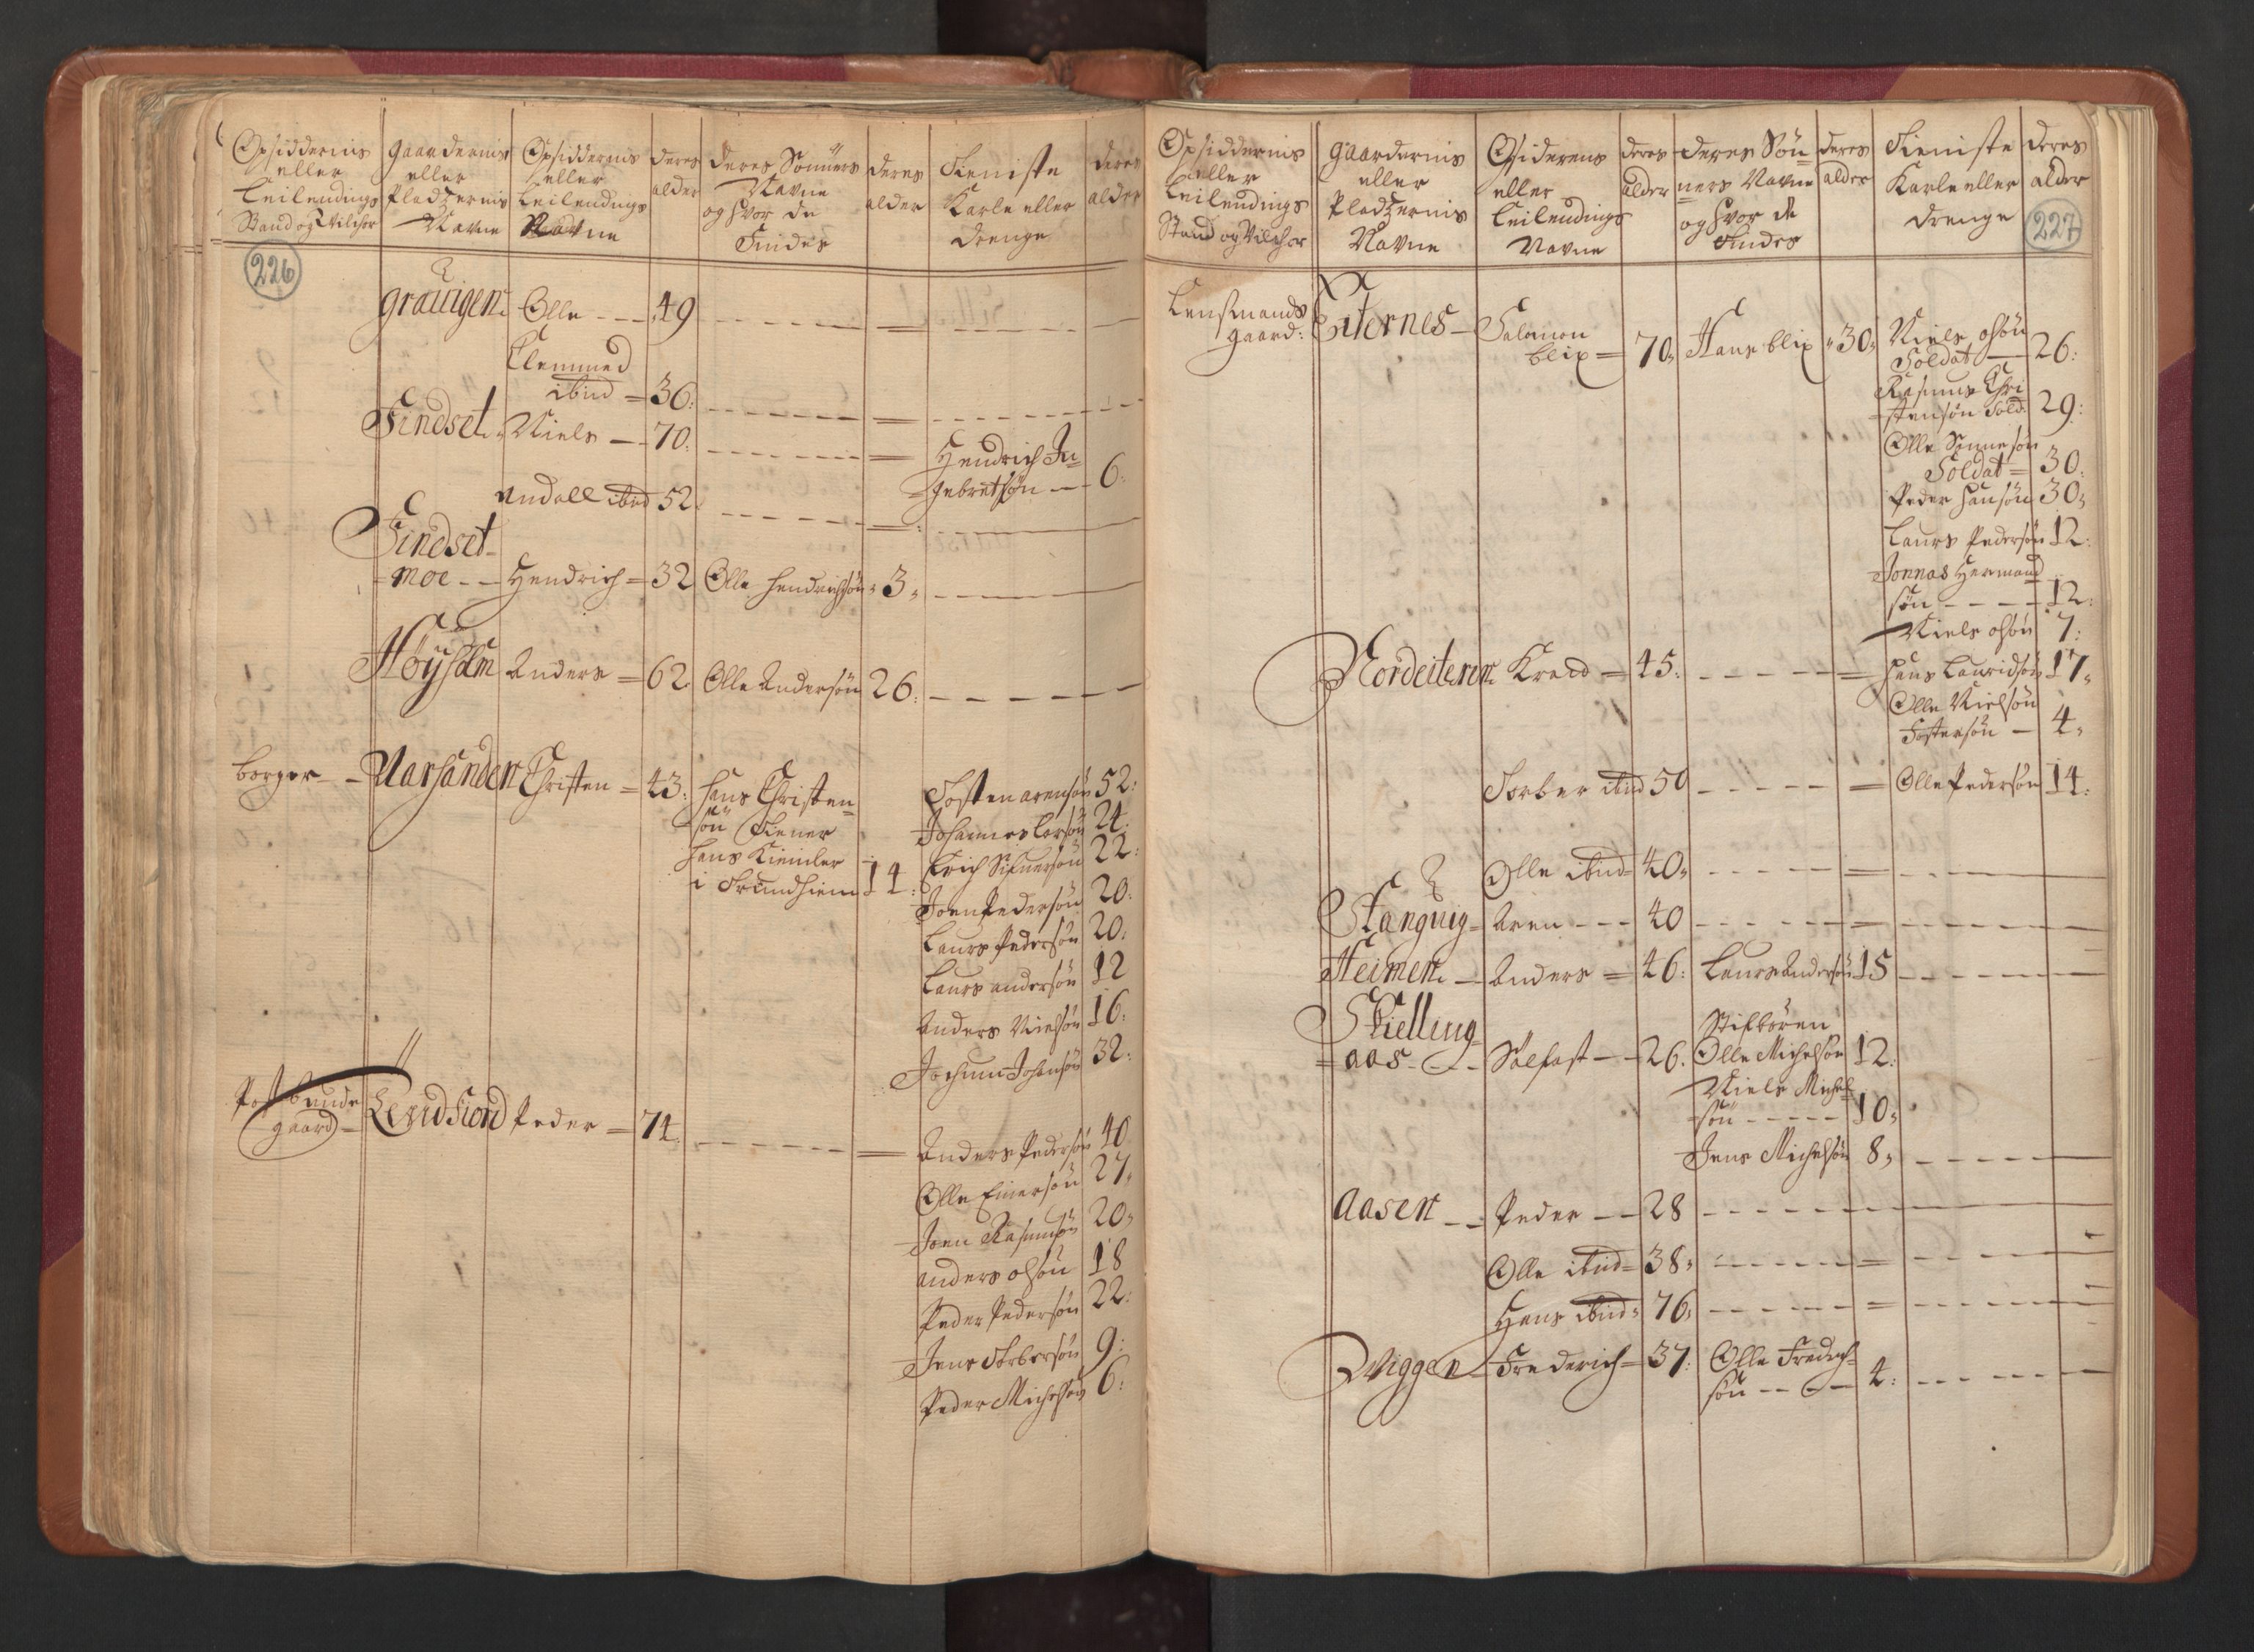 Opsiddernis
eller
Leilendings
Stand og Vilchor
gaardernis
eller
Pladzernis
Navne
Opsiddernis
eller
Leilendings
Navne
deres
alder
deres Sönners
Navne
og hvor de
Findes
deres
alder
Tieniste
Karle eller
drenge
deres
alder
226
grauigen Olle - - - 49
Clemmed
ibid = 36:
Findset Niels - - 70:
Hendrich In=
gebretsøn - - 6:
endall ibid 52
Findset=
=moe - - Hendrich = 32 Olle Hendrichsøn 3
Höyholm Anders = 62 Olle Andersøn 26:
borger - - Aarsanden Christen = 43: Hans Christen=
søn tiener
Hans
i Trundhiem 14:
Tosten arensøn 52:
Johannes Larsøn 24:
Erich 22:
Joen Pedersøn 20:
Laurs Pedersøn 20:
Laurs andersøn 12
Anders Nielsøn 16:
Jochum Johansøn 32:
Postbunde
gaard - Lendfiord Peder = 74:
Anders Pedersøn 40
Olle Einersøn 27
Joen Rasmusøn 20
anders olsøn 18
Peder Pedersøn 22:
Jens Torbersøn 9:
Peder Michelsøn 6:
Opsiddernis
eller
Leilendings
Stand og Vilchor
gaardernis
eller
Pladzernis
Navne
Opsiderens
eller
Leilendings
Navne
deres
alder
deres Søn=
ners Navne
og hvor de
Findes
deres
alder
Tieniste
Karle eller
drenge
deres
alder
227
Lensmands
gaard: Eiternes - Salomon
blix = 70 Hans blix 30 Niels olsøn
Soldat - 26:
Rasmus Chri
=stensøn Sold: 29:
Olle
Soldat = 30:
Peder Hansøn 30
Laurs Pedersøn 12:
Jonnas Hermand
søn - - - - 12:
Niels olsøn 7:
Nordeiteren 45: - - - - = Hans Lauridsøn 17
Olle Nielsøn
Fostersøn - 4
Torber ibid 50 - - - - = Olle Pedersøn 14:
Olle ibid= 40
Stanguig= Aren - - - 40
Heimen - Anders = 46: Laurs Andersøn 15
Skielling=
=aas - - - Sølfast - - 26. Stifbören
Olle Michelsøn 12:
Niels Michel
=søn - - - - 10
Jens Michelsøn 8
Aasen - - Peder - - 28
Olle ibid= 38
Hans ibid= 76
Wiggen - Frederich = 37: Olle Fredrich=
søn - - - 4: